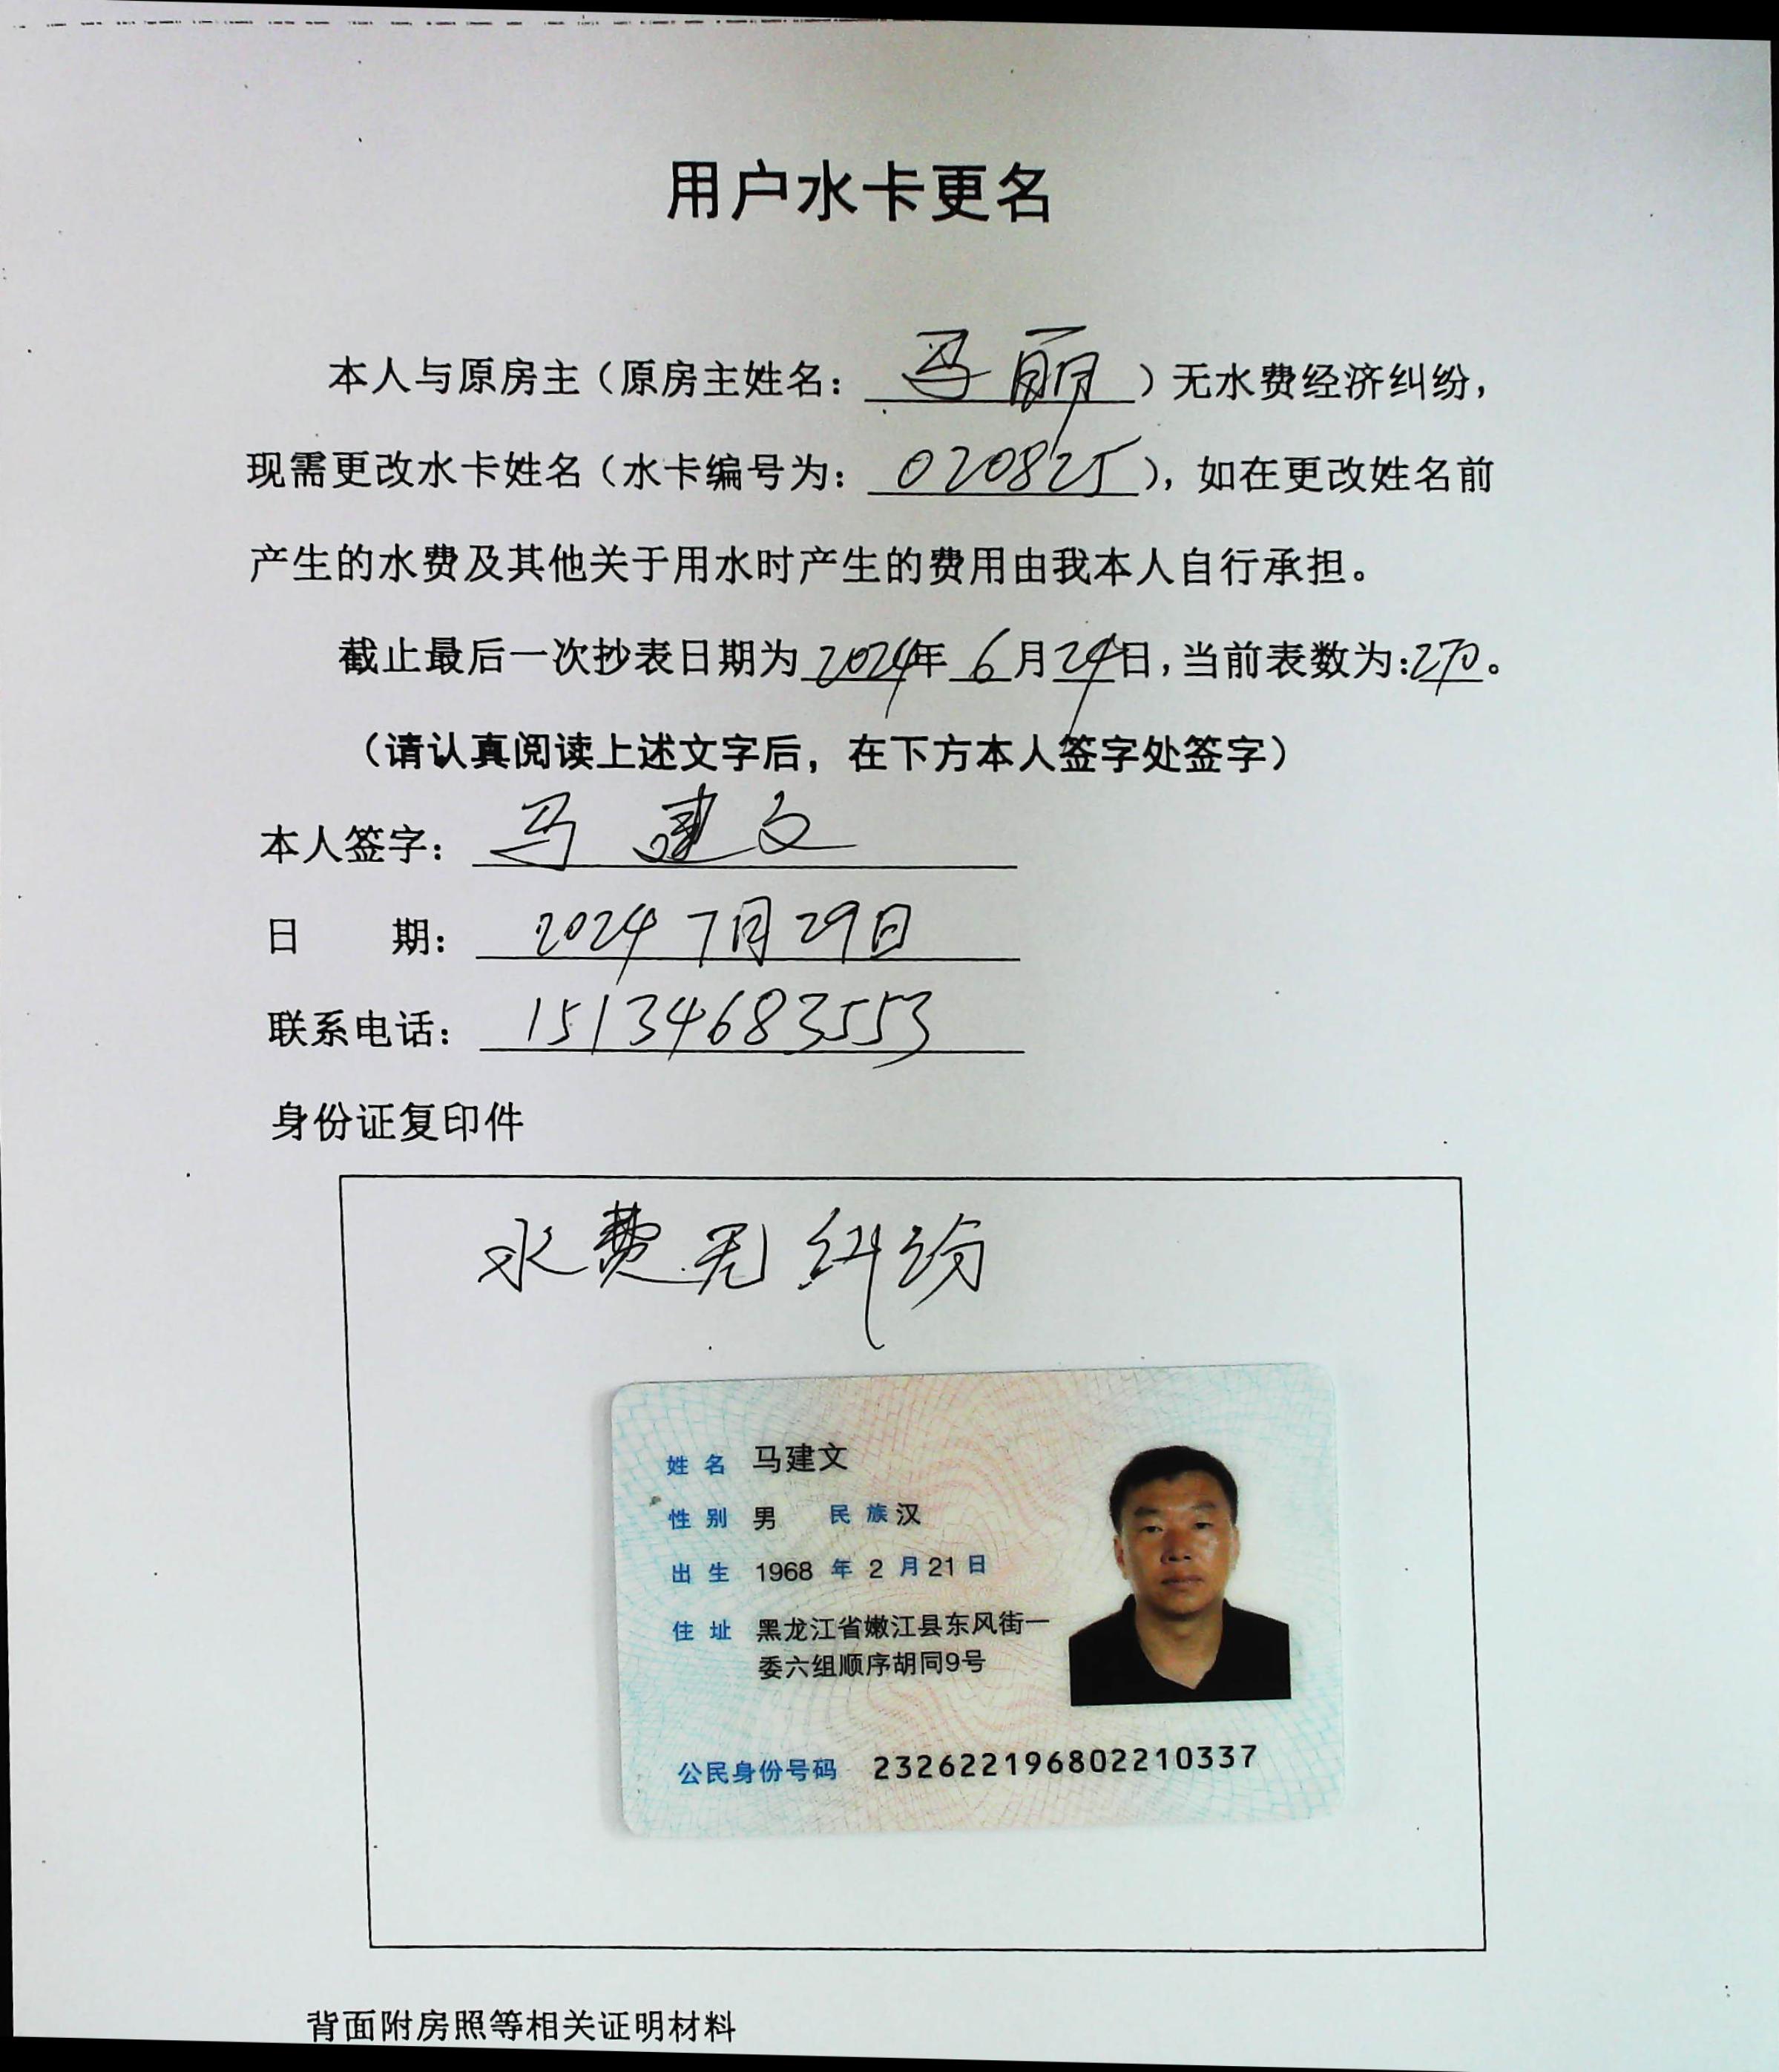 用户水卡更名
本人与原房主（原房主姓名：马丽）无水费经济纠纷，
现需更改水卡姓名（水卡编号为：020825），如在更改姓名前
产生的水费及其他关于用水时产生的费用由我本人自行承担。
截止最后一次抄表日期为2024年6月24日，当前表数为：270。
（请认真阅读上述文字后，在下方本人签字处签字）
本人签字：马建文
日 期：2024 7月29日
联系电话：15134683553
身份证复印件
水费无纠纷
姓名 马建文
性别 男 民族 汉
出生 1968 年 2 月 21 日
住址 黑龙江省嫩江县东风街一
委六组顺序胡同9号
公民身份号码 232622196802210337
背面附房照等相关证明材料